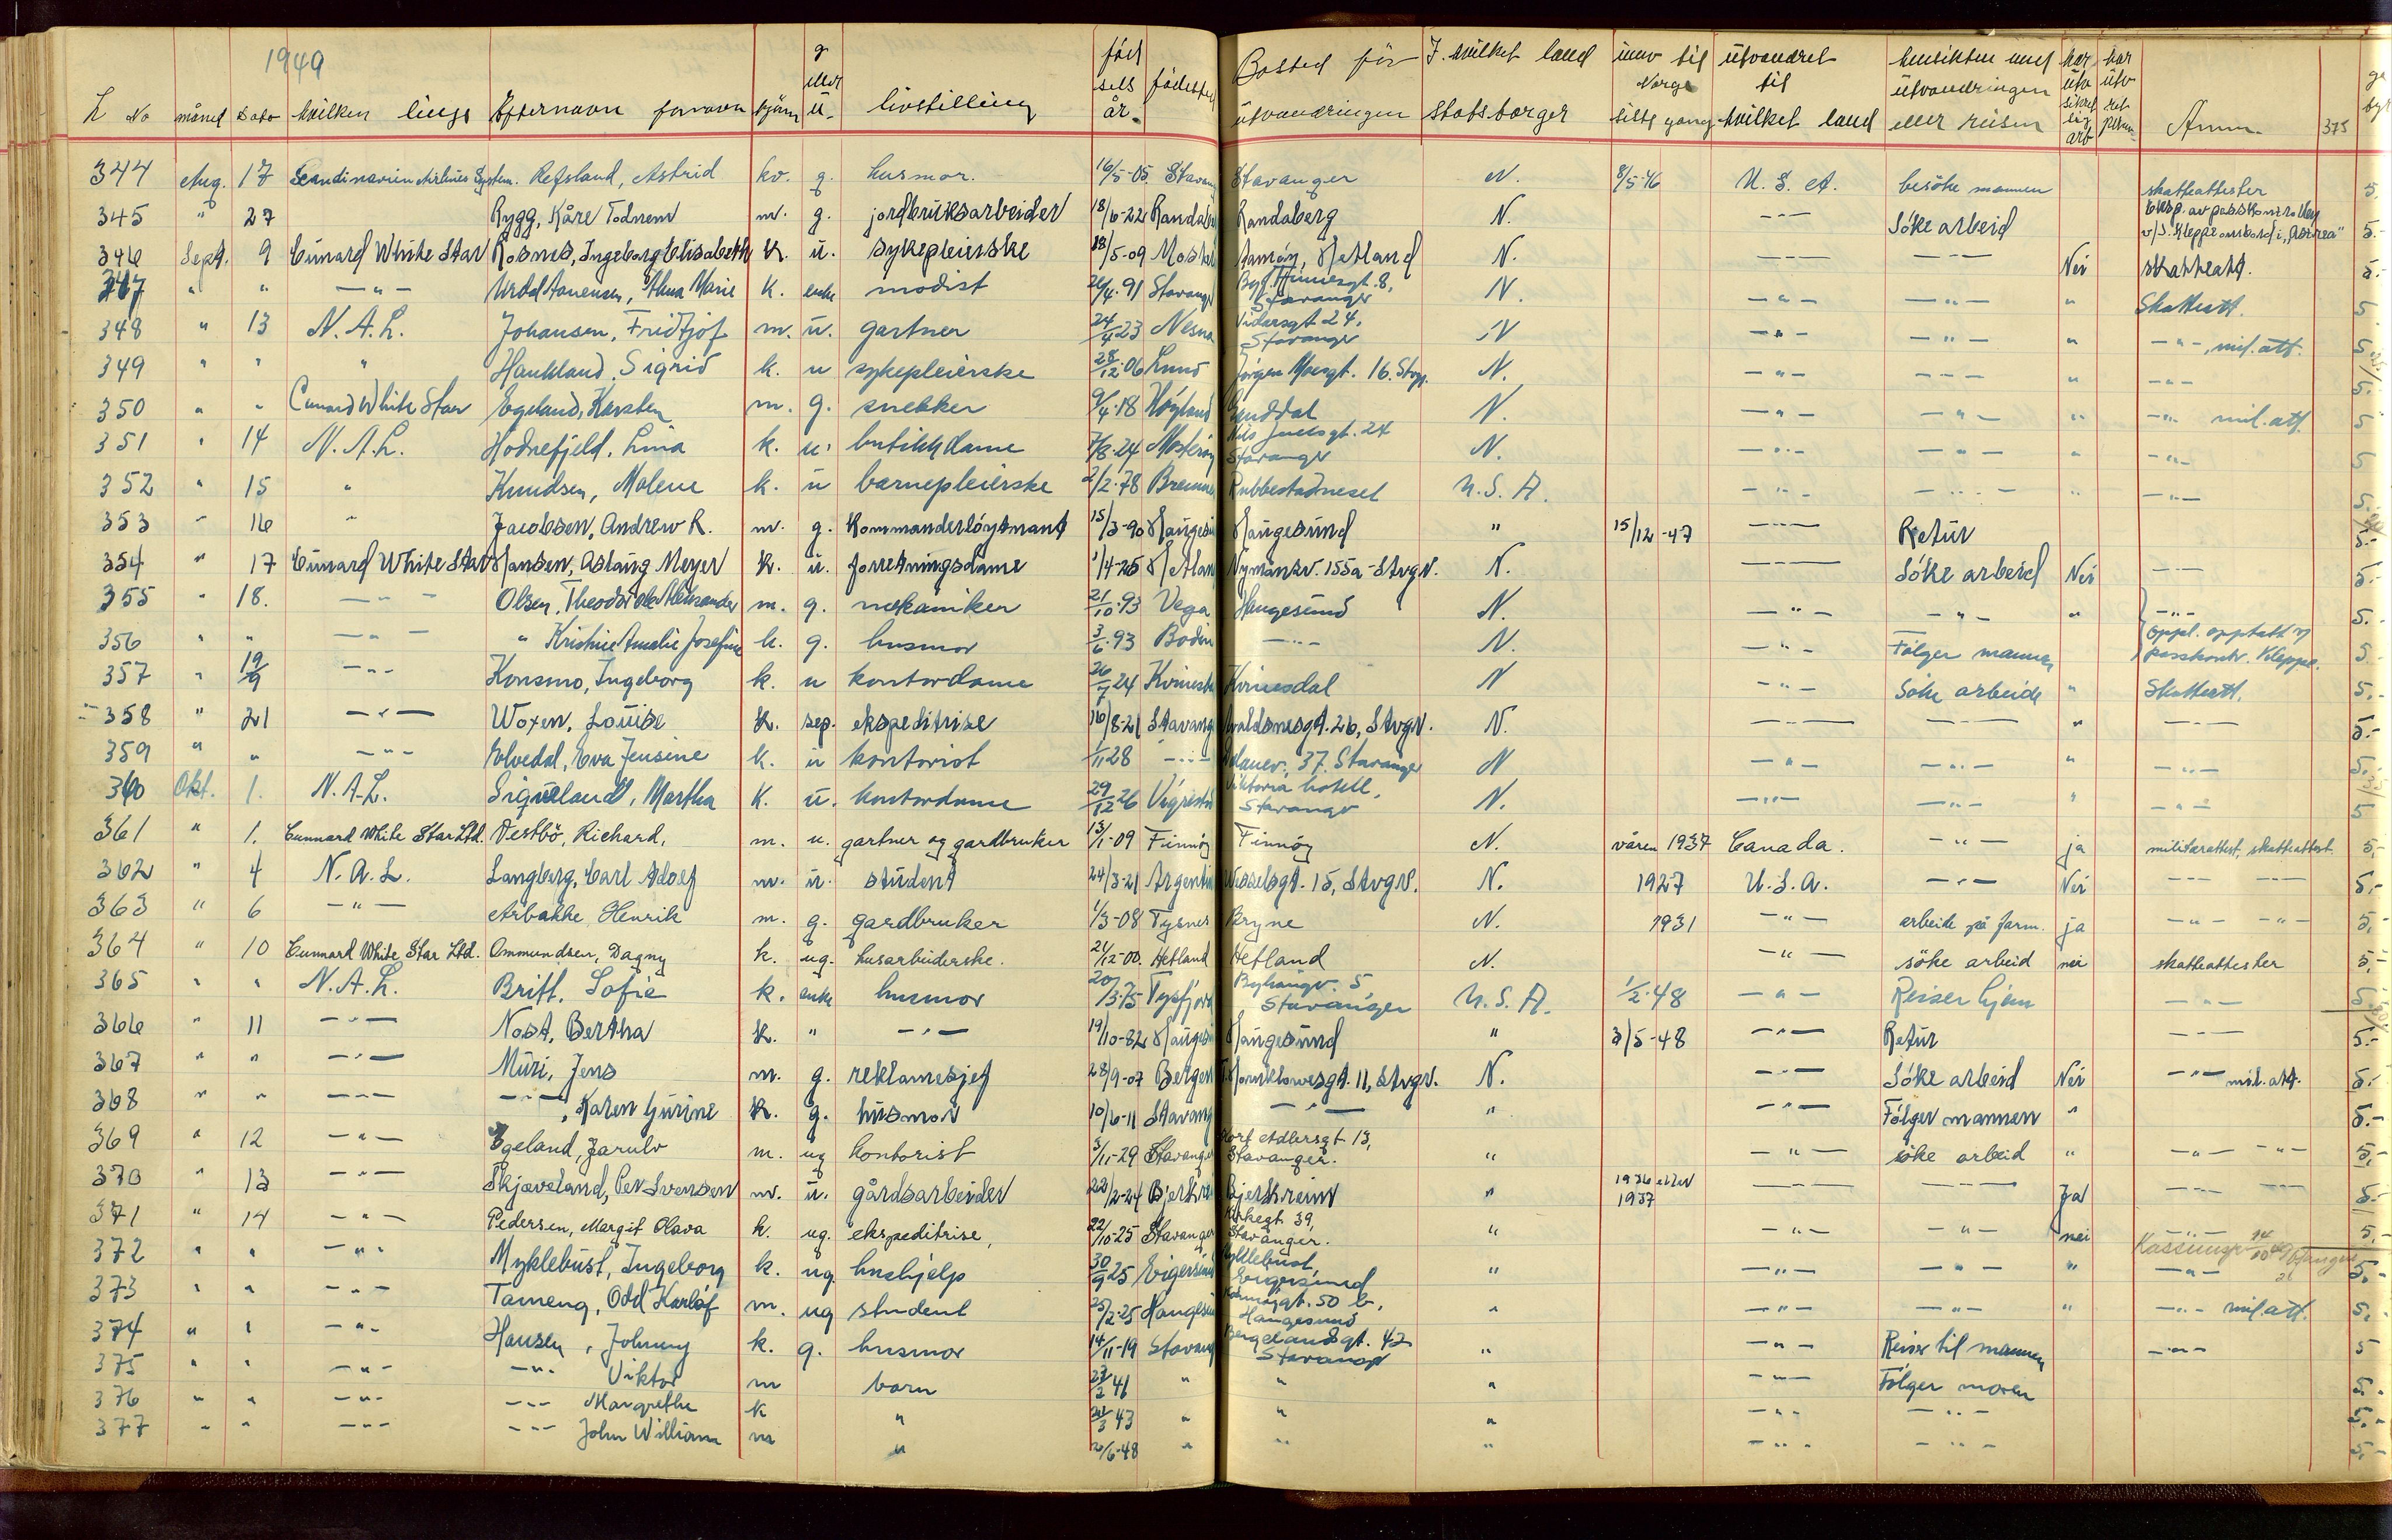 1949
L No måned Dato hvilken linje Efternavn fornavn kjønn g eller u. livstilling fødselsår. fødested Bosted før utvandringen I hvilket land statsborger innv til Norge siste gang utvandret til hvilket land hensikten med utvandringen eller reisen har utv sikret sig arb har utv ret Anm. 375
344 Aug. 17 Scandinavien Airlines System. Refsland, Astrid kv. g. husmor. 16/5-05 Stavang Stavanger N. 8/5-46 U. S. A. besöke mannen skatteattester 5.
345 " 27 Rygg, Kåre Todnem m. g. jordbruksarbeider 18/6-22 Randab Randaberg N. -"- Söke arbeid Eksp. av passkontrollen v/S. Kleppe ombord i "Astrea" 5.-
346 Sept. 9 Cunard White Star Rosnes, Ingeborg Elisabeth K. u. sykepleierske 18/5-09 Moster Åmöy, Hetland N. -"- -"- Nei skatteatt. 5.-
347 " " -"- Anna Marie K. enke modist 26/4.91 Stavang Stavanger N. -"- -"- " Skatteatt. 5
348 " 13 N. A. L. Johansen, Fridtjof m. u. gartner 24/4 23 Nesna Vidarsgt 24, Stavanger N -"- -"- " -"-, mil. att. 5.
349 " " " Haukland, Sigrid k. u sykepleierske 28/12.06 Lund Jörgen Moesgt. 16. Stvgr. N. -"- -"- " -"- 5.
350 " " Cunard White Star Egeland, Karsten m. g. snekker 9/4.18 Höyland N. -"- -"- " -"- mil. att. 5
351 " 14 N. A. L. Hodnefjeld, Lina k. u. butikkdame 7/8.24 Mosteröy Nils Juelsgt. 24 Stavanger N. -"- -"- " -"- 5
352 " 15 " Knudsen, Malene k. u barnepleierske 2/2.78 Bremnes Rubbestadneset U. S. A. -"- -"- " -"- 5.
353 " 16 " Jacobsen, Andrew R. m. g. kommanderlöytnant 15/3-90 Haugesu Haugesund " 15/12-47 -"- Retur 5.-
354 " 17 Cunard White Star Hansen, Aslaug Meyer K. u. forretningsdame 1/4-25 Hetlan Nymansv. 155a-Stvgr. N. -"- Söke arbeid Nei -"- 5.-
355 " 18. -"- Olsen, Theodor Aleksander m. g. mekaniker 21/10.93 Vega Haugesund N. -"- -"- " -"- 5.
356 " " -"- " Kristine Amalie Josefine k. g. husmor 3/6.93 Bodin -"- N. -"- Fölger mannen oppl. opptatt v/ passkontr. Kleppe. 5
357 " 19/9 -"- Konsmo, Ingeborg k. u kontordame 26/7 24 Kvinesd Kvinesdal N -"- Söke arbeide " Skatteatt. 5.
358 " 21 -"- Woxen, Louise K. sep. ekspeditrise 16/8-21 Stavang Avaldsnesgt. 26, Stvgr. N. -"- -"- " -"- 5.-
359 " " -"- Elvedal, Eva Jensine k. u kontorist 1/1 28 -"- 37. Stavanger N -"- -"- " -"- 5.
360 Okt. 1. N. A. L. Sigveland, Martha K. u. kontordame 29/12 26 Vigrestad Viktoria hotell, Stavanger N. -"- -"- " -"- 5
361 " 1. Cunnard White Star Ltd. Vestbö, Richard, m. u. gartner og gardbruker 13/1-09 Finnöy Finnöy N. våren 1937 Canada. -"- ja militærattest, skatteattest. 5.-
362 " 4 N. A. L. Langberg, Carl Adolf m. u. student 24/3-21 Argentin Wesselsgt. 15, Stvgr. N. 1927 U. S. A. -"- Nei -"- -"- 5.-
363 " 6 -"- Årbakke, Henrik m. g. gardbruker 1/3-08 Tysnes Bryne N. 1931 -"- arbeide på farm. ja -"- -"- 5.
364 " 10 Cunnard White Star Ltd. Ommundsen, Dagny k. ug. husarbeiderske. 21/12-00. Hetland Hetland N. -"- söke arbeid nei skatteattester 5.-
365 " " N. A. L. Britt, Sofie k. enke husmor 20/3.75 Tysfjord Byhaugv. 5 Stavanger U. S. A. 1/2.48 -"- Reiser hjem -"- 5.
366 " 11 -"- Nost, Bertha K. " -"- 19/10-82 Hauges Haugesund " 3/5-48 -"- Retur -"- 5.-
367 " " -"- Muri, Jens m. g. reklamesjef 28/9-07 Bergen Munklowesgt. 11, Stvgr. N. -"- Söke arbeid Nei -"- mil. att. 5.-
368 " " -"- -"-, Karen Gurine K. g. husmor 10/6-11 Stavang -"- " -"- Fölger mannen " 5.-
369 " 12 -"- Egeland, Jarulv m. ug kontorist 3/11-29 Stavange Kort Adlersgt 13, Stavanger. " -"- söke arbeid " -"- -"- 5.-
370 " 13 -"- Skjæveland, Per Svensen m. u. gårdsarbeider 22/2-24 Bjerkre Bjerkreim " 1936 eller 1937 -"- -"- Ja -"- -"- 5.-
371 " 14 -"- Pedersen, Margit Olava k. ug. ekspeditrise, 22/10-25 Stavange Kirkegt 39, Stavanger. " -"- -"- nei -"- 5.-
372 " " -"- Myklebust, Ingeborg k. ug hushjelp 30/9 25 Eigersund Myklebust, Eigersund " -"- -"- " -"- 5.-
373 " " -"- Tameng, Odd Karlof m. ug student 25/2.25 Haugesu Karmöygt. 50 b, Haugesund " -"- -"- " -"- mil. att. 5.
374 " " -"- Hansen, Johnny k. g. husmor 14/11-19 Stavang Bergelandsgt. 42 Stavanger " -"- Reiser til mannen -"- 5
375 " " -"- -"- Viktor m barn 23/2 41 " " " -"- Fölger moren 5.
376 " " -"- -"- Margrethe k " 3 43 " " " -"- -"- 5.-
377 " " -"- -"- John William m " /6-48 " " " -"- -"- 5.-